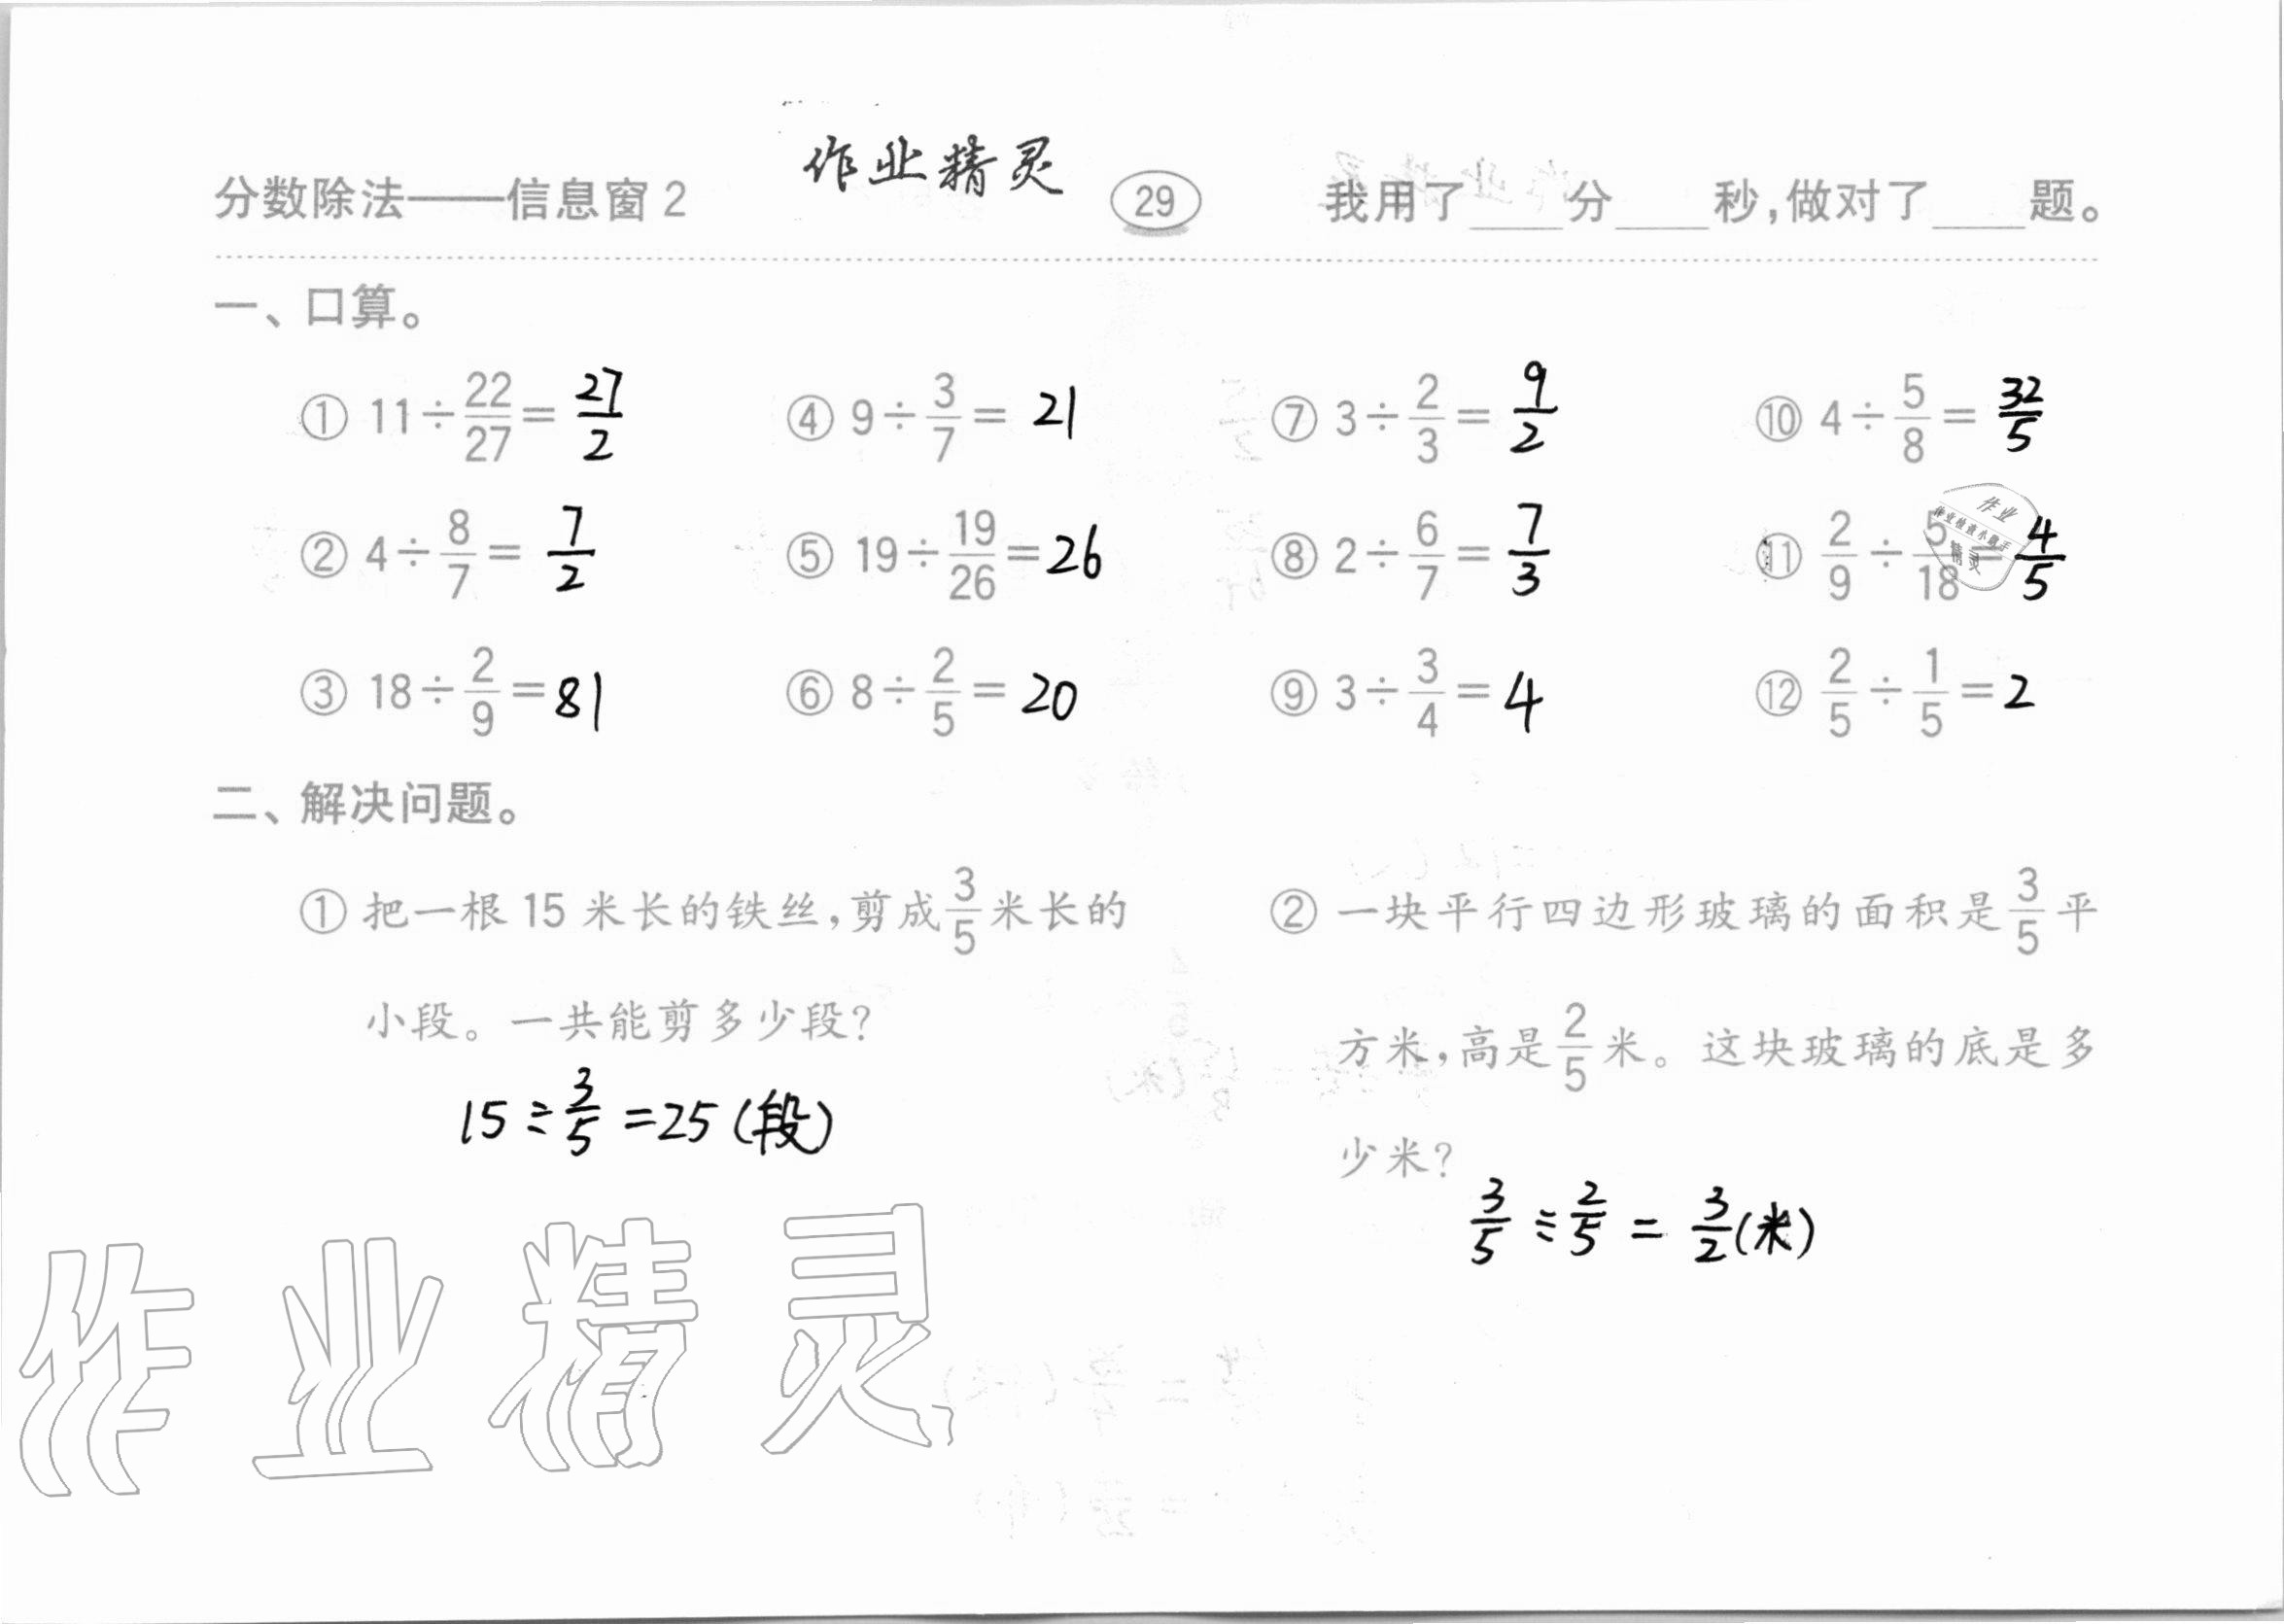 作业精灵
分数除法——信息窗2 29 我用了____分____秒,做对了____题。
一、口算。
① 11÷22/27=27/2 ④ 9÷3/7=21 ⑦ 3÷2/3=9/2 ⑩ 4÷5/8=32/5
② 4÷8/7=7/2 ⑤ 19÷19/26=26 ⑧ 2÷6/7=7/3 ⑪ 2/9÷5/18=4/5
③ 18÷2/9=81 ⑥ 8÷2/5=20 ⑨ 3÷3/4=4 ⑫ 2/5÷1/5=2
二、解决问题。
① 把一根15米长的铁丝,剪成3/5米长的
小段。一共能剪多少段?
15÷3/5=25(段)
② 一块平行四边形玻璃的面积是3/5平
方米,高是2/5米。这块玻璃的底是多
少米?
3/5÷2/5=3/2(米)
作业
精灵
作业精灵